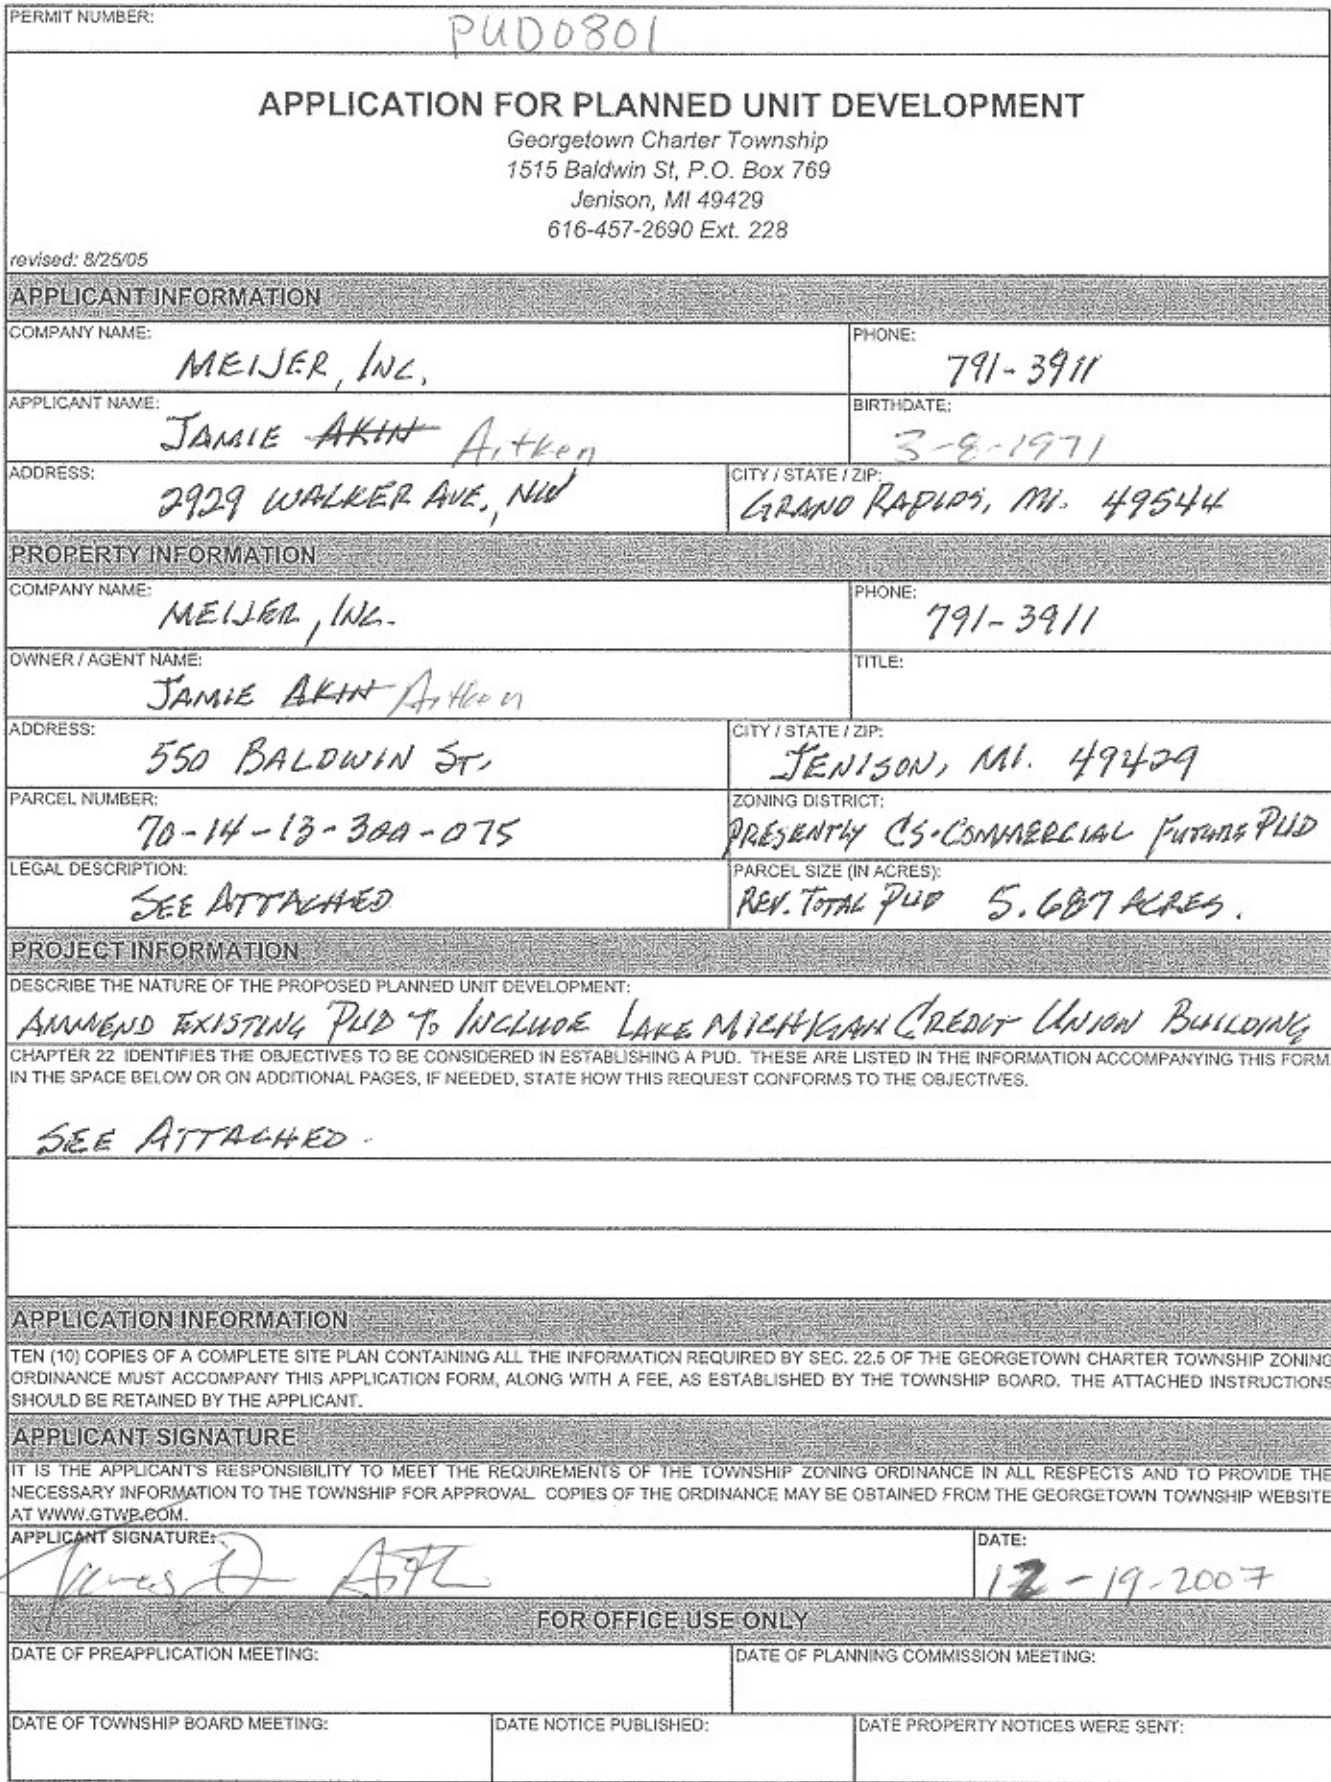 PERMIT NUMBER: PUD0801
APPLICATION FOR PLANNED UNIT DEVELOPMENT
Georgetown Charter Township
1515 Baldwin St, P.O. Box 769
Jenison, MI 49429
616-457-2690 Ext. 228
revised: 8/25/05
APPLICANT INFORMATION
COMPANY NAME: PHONE:
MEIJER, INC. 791-3911
APPLICANT NAME: BIRTHDATE:
JAMIE AKIN Aitken 3-8-1971
ADDRESS: CITY / STATE / ZIP:
2929 WALKER AVE., NW GRAND RAPIDS, MI. 49544
PROPERTY INFORMATION
COMPANY NAME: PHONE:
MEIJER, INC. 791-3911
OWNER / AGENT NAME: TITLE:
JAMIE AKIN Aitken
ADDRESS: CITY / STATE / ZIP:
550 BALDWIN ST, JENISON, MI. 49429
PARCEL NUMBER: ZONING DISTRICT:
70-14-13-300-075 PRESENTLY CS-COMMERCIAL FUTURE PUD
LEGAL DESCRIPTION: PARCEL SIZE (IN ACRES):
SEE ATTACHED REV. TOTAL PUD 5.687 ACRES.
PROJECT INFORMATION
DESCRIBE THE NATURE OF THE PROPOSED PLANNED UNIT DEVELOPMENT:
AMMEND EXISTING PUD TO INCLUDE LAKE MICHIGAN CREDIT UNION BUILDING
CHAPTER 22 IDENTIFIES THE OBJECTIVES TO BE CONSIDERED IN ESTABLISHING A PUD. THESE ARE LISTED IN THE INFORMATION ACCOMPANYING THIS FORM.
IN THE SPACE BELOW OR ON ADDITIONAL PAGES, IF NEEDED, STATE HOW THIS REQUEST CONFORMS TO THE OBJECTIVES.
SEE ATTACHED.
APPLICATION INFORMATION
TEN (10) COPIES OF A COMPLETE SITE PLAN CONTAINING ALL THE INFORMATION REQUIRED BY SEC. 22.5 OF THE GEORGETOWN CHARTER TOWNSHIP ZONING
ORDINANCE MUST ACCOMPANY THIS APPLICATION FORM, ALONG WITH A FEE, AS ESTABLISHED BY THE TOWNSHIP BOARD. THE ATTACHED INSTRUCTIONS
SHOULD BE RETAINED BY THE APPLICANT.
APPLICANT SIGNATURE
IT IS THE APPLICANT'S RESPONSIBILITY TO MEET THE REQUIREMENTS OF THE TOWNSHIP ZONING ORDINANCE IN ALL RESPECTS AND TO PROVIDE THE
NECESSARY INFORMATION TO THE TOWNSHIP FOR APPROVAL. COPIES OF THE ORDINANCE MAY BE OBTAINED FROM THE GEORGETOWN TOWNSHIP WEBSITE
AT WWW.GTWP.COM.
APPLICANT SIGNATURE: DATE:
12-19-2007
FOR OFFICE USE ONLY
DATE OF PREAPPLICATION MEETING: DATE OF PLANNING COMMISSION MEETING:
DATE OF TOWNSHIP BOARD MEETING: DATE NOTICE PUBLISHED: DATE PROPERTY NOTICES WERE SENT: